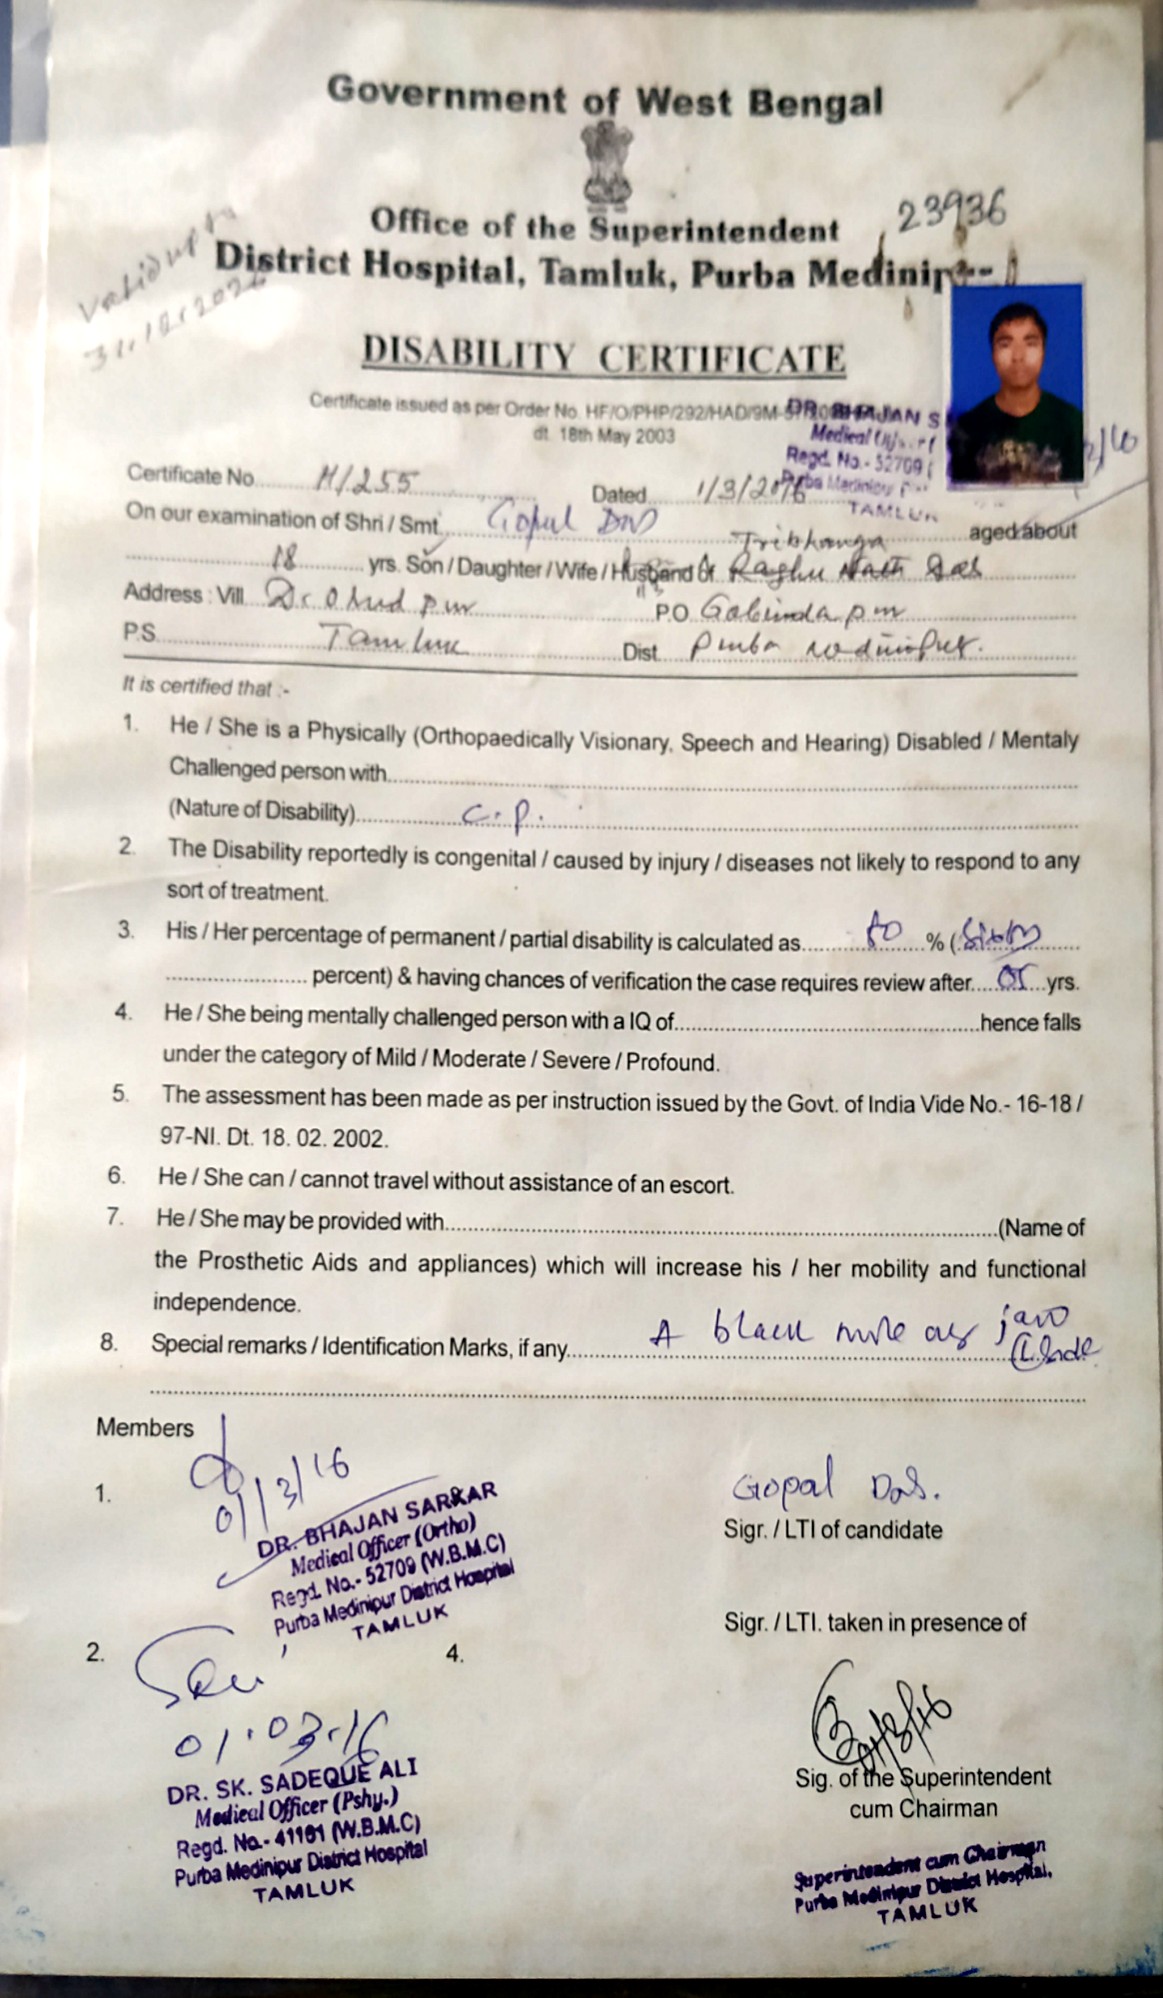 Government of West Bengal
23936
Office of the Superintendent
District Hospital, Tamluk, Purba Medinip
Valid upto
31.12.202
DISABILITY CERTIFICATE
Certificate issued as per Order No. HF/O/PHP/292/HAD/9M-
dt. 18th May 2003
DR. BHAJAN S
Medical
Regd. No.- 52709 (
Purba Medinipur
TAMLUK
Certificate No. M/255 Dated 1/3/2016
On our examination of Shri / Smt. Gopal Das aged about
Tribhanga
18 yrs. Son / Daughter / Wife / Husband of Raghu Nath Das
Address : Vill. P.O. Gobinda pur
P.S. Tamluk Dist. Purba Medinipur.
It is certified that :-
1. He / She is a Physically (Orthopaedically Visionary, Speech and Hearing) Disabled / Mentaly
Challenged person with
(Nature of Disability) C.P.
2. The Disability reportedly is congenital / caused by injury / diseases not likely to respond to any
sort of treatment.
3. His / Her percentage of permanent / partial disability is calculated as % (
percent) & having chances of verification the case requires review after 05 yrs.
4. He / She being mentally challenged person with a IQ of hence falls
under the category of Mild / Moderate / Severe / Profound.
5. The assessment has been made as per instruction issued by the Govt. of India Vide No.- 16-18 /
97-NI. Dt. 18. 02. 2002.
6. He / She can / cannot travel without assistance of an escort.
7. He / She may be provided with (Name of
the Prosthetic Aids and appliances) which will increase his / her mobility and functional
independence.
8. Special remarks / Identification Marks, if any A black mole jaw
Members
1.
01/3/16
DR. BHAJAN SARKAR
Medical Officer (Ortho)
Regd. No.- 52709 (W.B.M.C)
Purba Medinipur District Hospital
TAMLUK
Gopal Das.
Sigr. / LTI of candidate
Sigr. / LTI. taken in presence of
2.
4.
01.03.16
DR. SK. SADEQUE ALI
Medical Officer (Pshy.)
Regd. No.- 41161 (W.B.M.C)
Purba Medinipur District Hospital
TAMLUK
01/3/16
Sig. of the Superintendent
cum Chairman
Superintendent cum Chairman
Purba Medinipur District Hospital,
TAMLUK